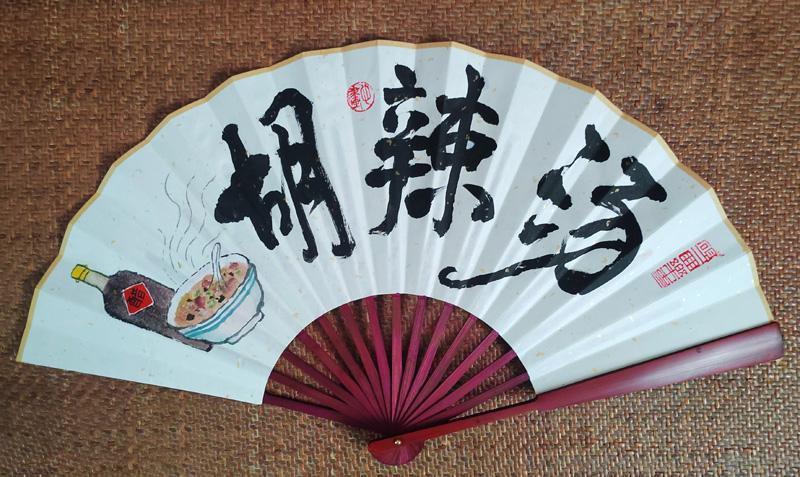 胡辣汤
醋